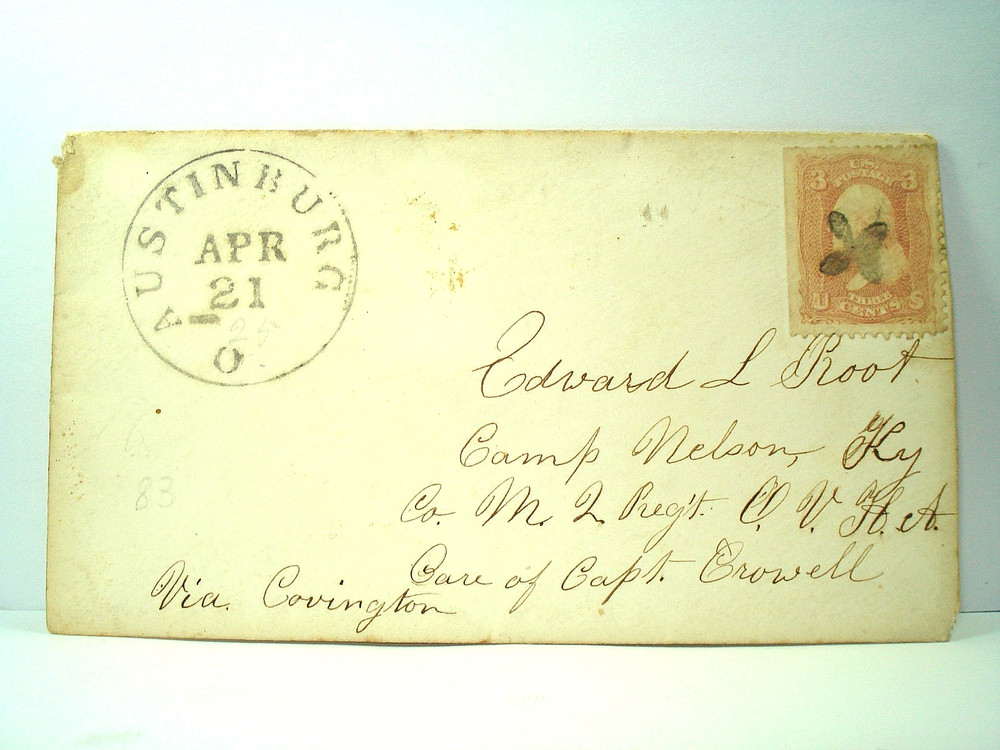 AUSTINBURG
APR
21
O
25
83
3 U.S. 3
POSTAGE
U THREE S
CENTS
Edward L Root
Camp Nelson, Ky
Co. M. 2 Reg't. O. V. H. A.
Care of Capt. Crowell
Via. Covington